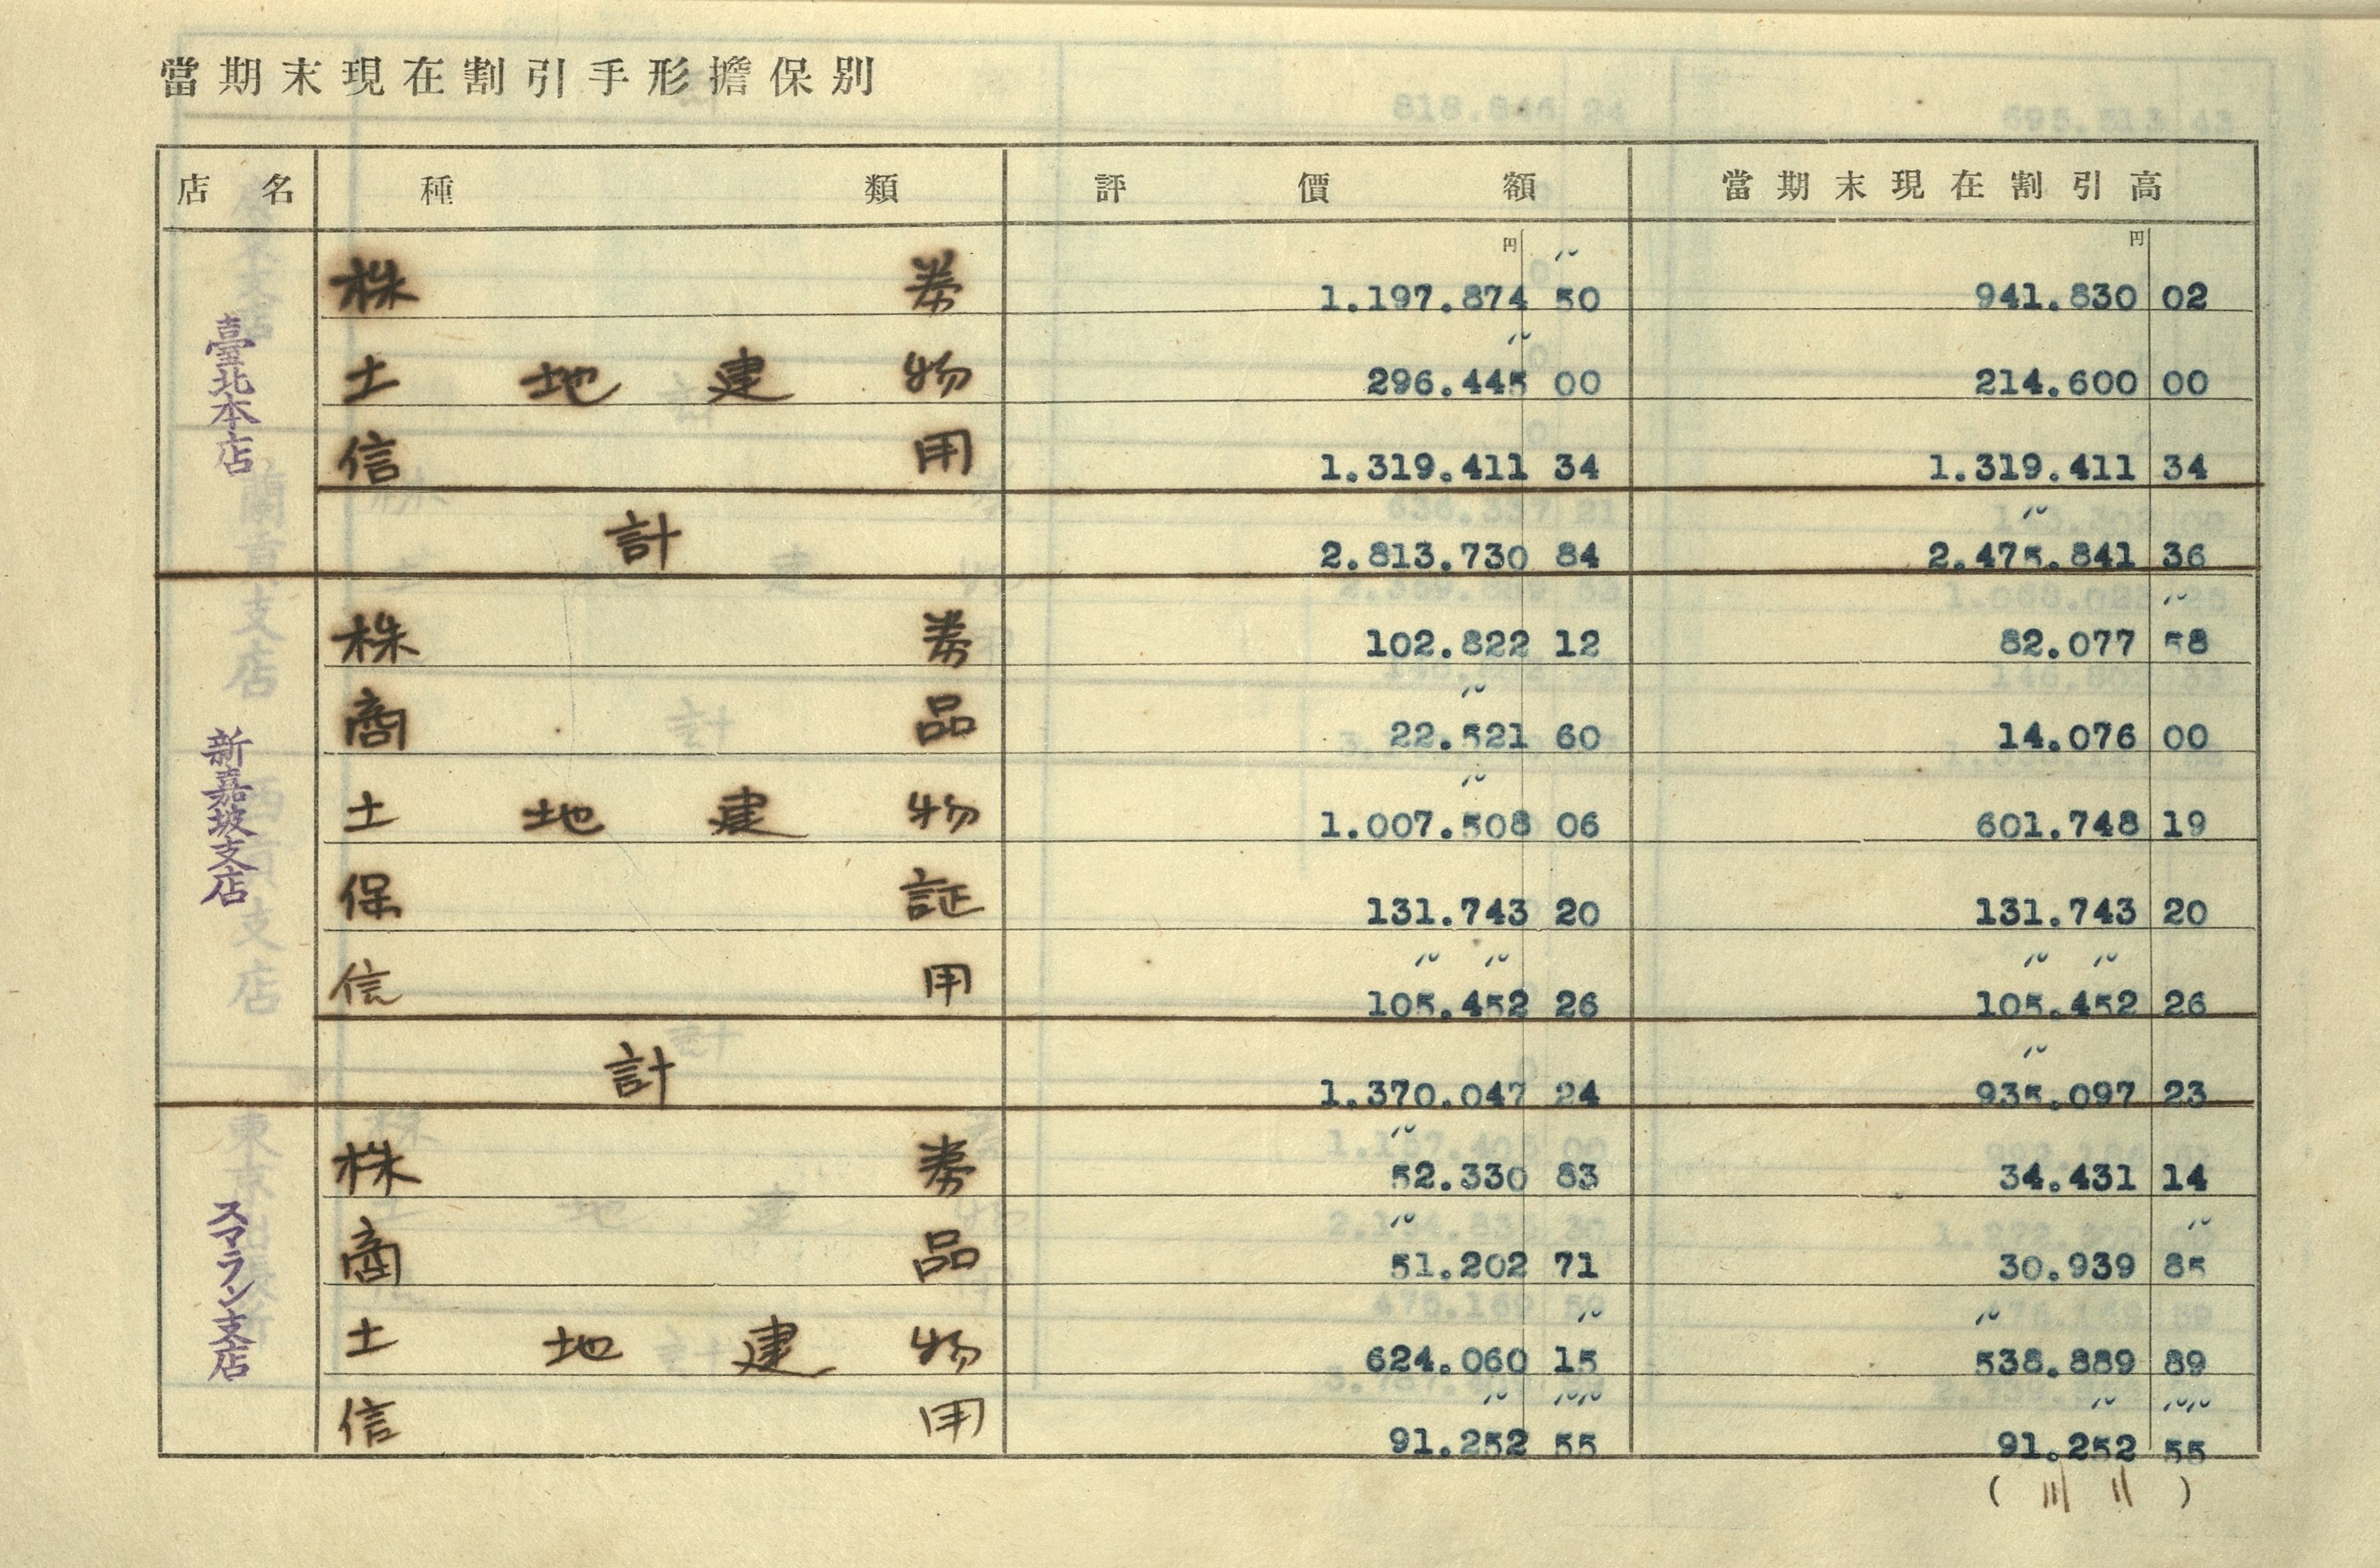 當期末現在割引手形擔保別
店名 種類 評價額 當期末現在割引高
円 円
臺北本店
株券 1.197.874 50 941.830 02
土地建物 296.445 00 214.600 00
信用 1.319.411 34 1.319.411 34
計 2.813.730 84 2.475.841 36
新嘉坡支店
株券 102.822 12 82.077 58
商品 22.521 60 14.076 00
土地建物 1.007.508 06 601.748 19
保証 131.743 20 131.743 20
信用 105.452 26 105.452 26
計 1.370.047 24 935.097 23
スマラン支店
株券 52.330 83 34.431 14
商品 51.202 71 30.939 85
土地建物 624.060 15 538.889 89
信用 91.252 55 91.252 55
( 〣 〢 )